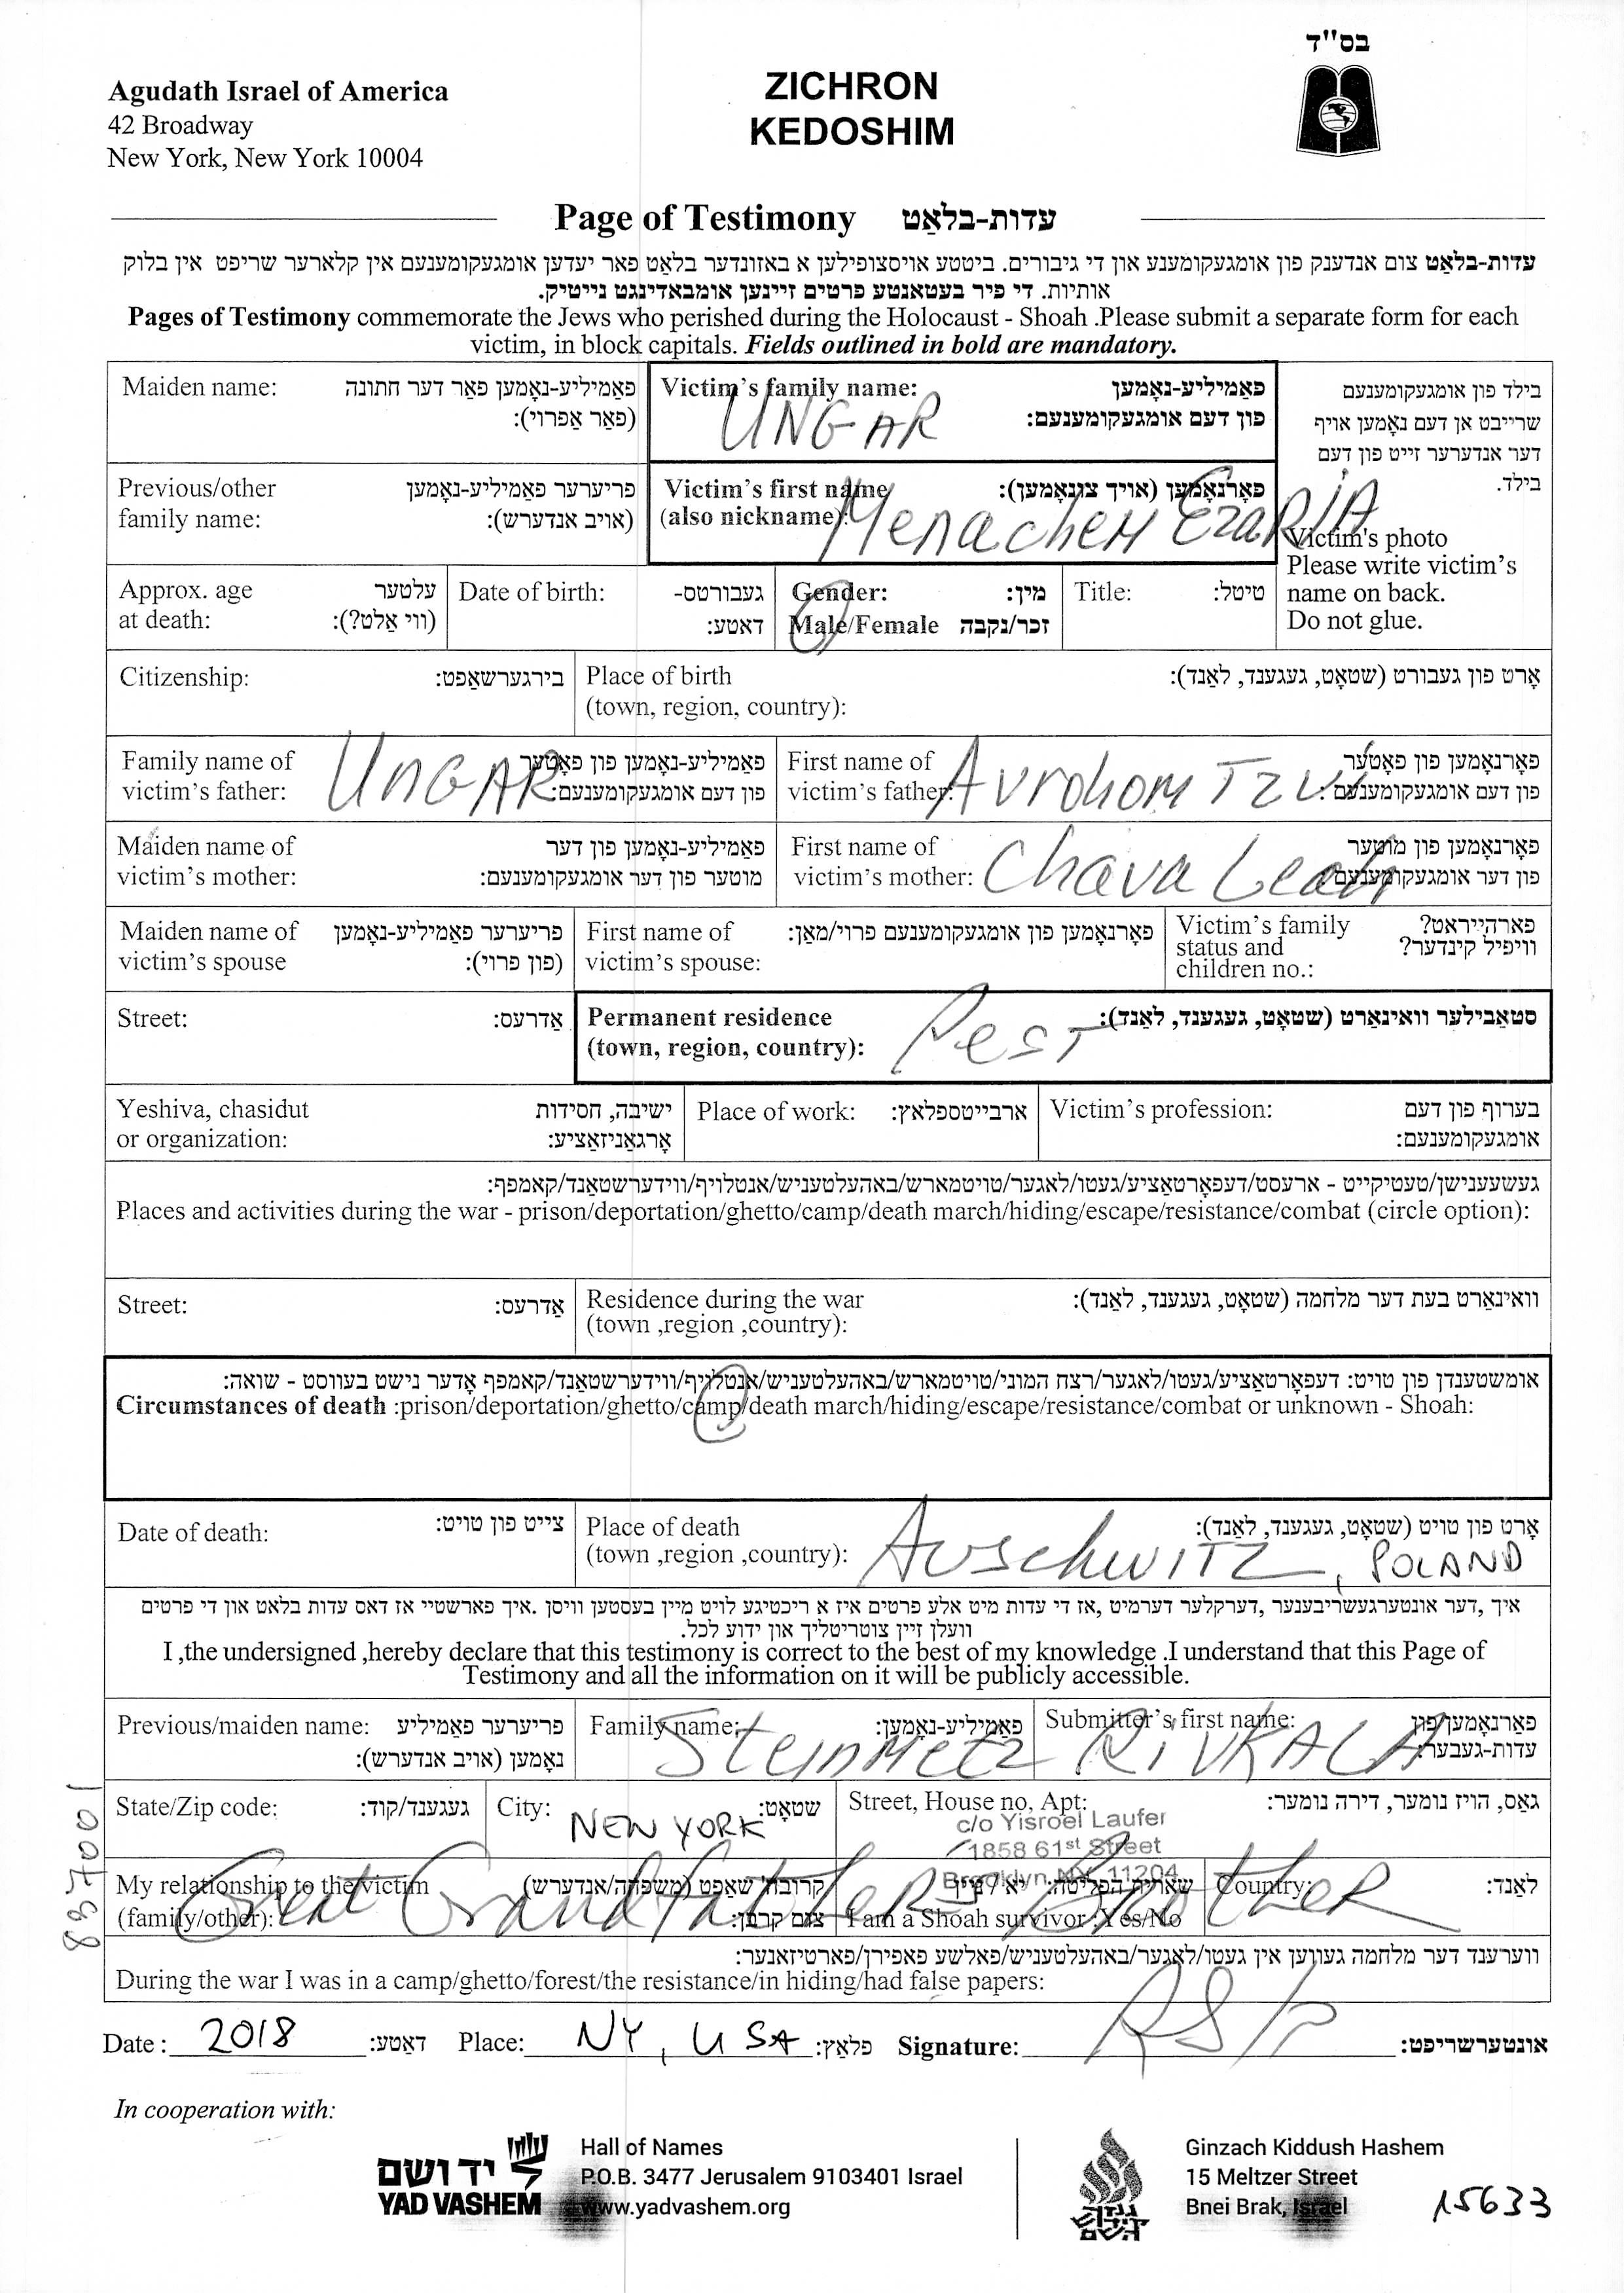 בס"ד
Agudath Israel of America
42 Broadway
New York, New York 10004
ZICHRON
KEDOSHIM
Page of Testimony עדות-בלאַט
עדות-בלאַט צום אנדענק פון אומגעקומענע און די גיבורים. ביטטע אויסצופילען א באזונדער בלאט פאר יעדען אומגעקומענעם אין קלארער שריפט אין בלוק
אותיות. די פיר בעטאנטע פרטים זיינען אומבאדינגט נייטיק.
Pages of Testimony commemorate the Jews who perished during the Holocaust - Shoah .Please submit a separate form for each
victim, in block capitals. Fields outlined in bold are mandatory.
Maiden name: פאַמיליע-נאָמען פאַר דער חתונה
(פאַר אַפרוי):
Victim's family name: פאַמיליע-נאָמען
פון דעם אומגעקומענעם:
UNGAR
בילד פון אומגעקומענעם
שרייבט אן דעם נאָמען אויף
דער אנדערער זייט פון דעם
בילד.
Victim's photo
Please write victim's
name on back.
Do not glue.
Previous/other פריערער פאַמיליע-נאָמען
family name: (אויב אנדערש):
Victim's first name פאָרנאָמען (אויך צונאָמען):
(also nickname):
Menachem EzaRIA
Approx. age עלטער
at death: (ווי אַלט?):
Date of birth: געבורטס-
דאטע:
Gender: מין:
Male/Female זכר/נקבה
Title: טיטל:
Citizenship: בירגערשאַפט:
Place of birth אָרט פון געבורט (שטאָט, געגענד, לאַנד):
(town, region, country):
Family name of פאַמיליע-נאָמען פון פאָטער
victim's father: פון דעם אומגעקומענעם:
UNGAR
First name of פאָרנאָמען פון פאָטער
victim's father: פון דעם אומגעקומענעם:
Avrohom TZVI
Maiden name of פאַמיליע-נאָמען פון דער
victim's mother: מוטער פון דער אומגעקומענעם:
First name of פאָרנאָמען פון מוטער
victim's mother: פון דער אומגעקומענעם:
Chava Leah
Maiden name of פריערער פאַמיליע-נאָמען
victim's spouse (פון פרוי):
First name of פאָרנאָמען פון אומגעקומענעם פרוי/מאַן:
victim's spouse:
Victim's family פארהייראט?
status and וויפיל קינדער?
children no.:
Street: אַדרעס:
Permanent residence סטאַבילער וואינאָרט (שטאָט, געגענד, לאַנד):
(town, region, country):
Pest
Yeshiva, chasidut ישיבה, חסידות
or organization: אָרגאַניזאַציע:
Place of work: ארבייטספלאץ:
Victim's profession: בערוף פון דעם
אומגעקומענעם:
געשעענישן/טעטיקייט - ארעסט/דעפּאָרטאַציע/געטו/לאגער/טויטמארש/באהעלטעניש/אנטלויף/ווידערשטאַנד/קאמפף:
Places and activities during the war - prison/deportation/ghetto/camp/death march/hiding/escape/resistance/combat (circle option):
Street: אַדרעס:
Residence during the war וואינאָרט בעת דער מלחמה (שטאָט, געגענד, לאַנד):
(town ,region ,country):
אומשטענדן פון טויט: דעפּאָרטאַציע/געטו/לאגער/רצח המוני/טויטמארש/באהעלטעניש/אנטלויף/ווידערשטאַנד/קאמפף אָדער נישט בעווסט - שואה:
Circumstances of death :prison/deportation/ghetto/camp/death march/hiding/escape/resistance/combat or unknown - Shoah:
Date of death: צייט פון טויט:
Place of death אָרט פון טויט (שטאָט, געגענד, לאַנד):
(town ,region ,country):
Auschwitz, POLAND
איך ,דער אונטערגעשריבענער ,דערקלער דערמיט ,אז די עדות מיט אלע פרטים איז א ריכטיגע לויט מיין בעסטען וויסן .איך פארשטיי אז דאס עדות בלאט און די פרטים
וועלן זיין צוטריטליך און ידוע לכל.
I ,the undersigned ,hereby declare that this testimony is correct to the best of my knowledge .I understand that this Page of
Testimony and all the information on it will be publicly accessible.
Previous/maiden name: פריערער פאַמיליע
נאָמען (אויב אנדערש):
Family name: פאַמיליע-נאָמען:
Steinmetz
Submitter's first name: פאָרנאָמען פון
עדות-געבער:
RIVKALA
State/Zip code: געגענד/קוד:
City: שטאָט:
NEW YORK
Street, House no, Apt: גאַס, הויז נומער, דירה נומער:
c/o Yisroel Laufer
1858 61st Street
Brooklyn, NY 11204
My relationship to the victim קרובה'שאַפט (משפּחה/אנדערש)
(family/other): צום קרבן:
Great Grandfather's Brother
שארית הפליטה:
I am a Shoah survivor :Yes/No
Country: לאַנד:
ווערענד דער מלחמה געווען אין געטו/לאגער/באהעלטעניש/פאלשע פאפירן/פארטיזאנער:
During the war I was in a camp/ghetto/forest/the resistance/in hiding/had false papers:
Date : 2018 דאַטע: Place: NY, USA פלאַץ: Signature: אונטערשריפט:
8937001
In cooperation with:
יד ושם
YAD VASHEM
Hall of Names
P.O.B. 3477 Jerusalem 9103401 Israel
www.yadvashem.org
גנזך קידוש השם
Ginzach Kiddush Hashem
15 Meltzer Street
Bnei Brak, Israel
15633